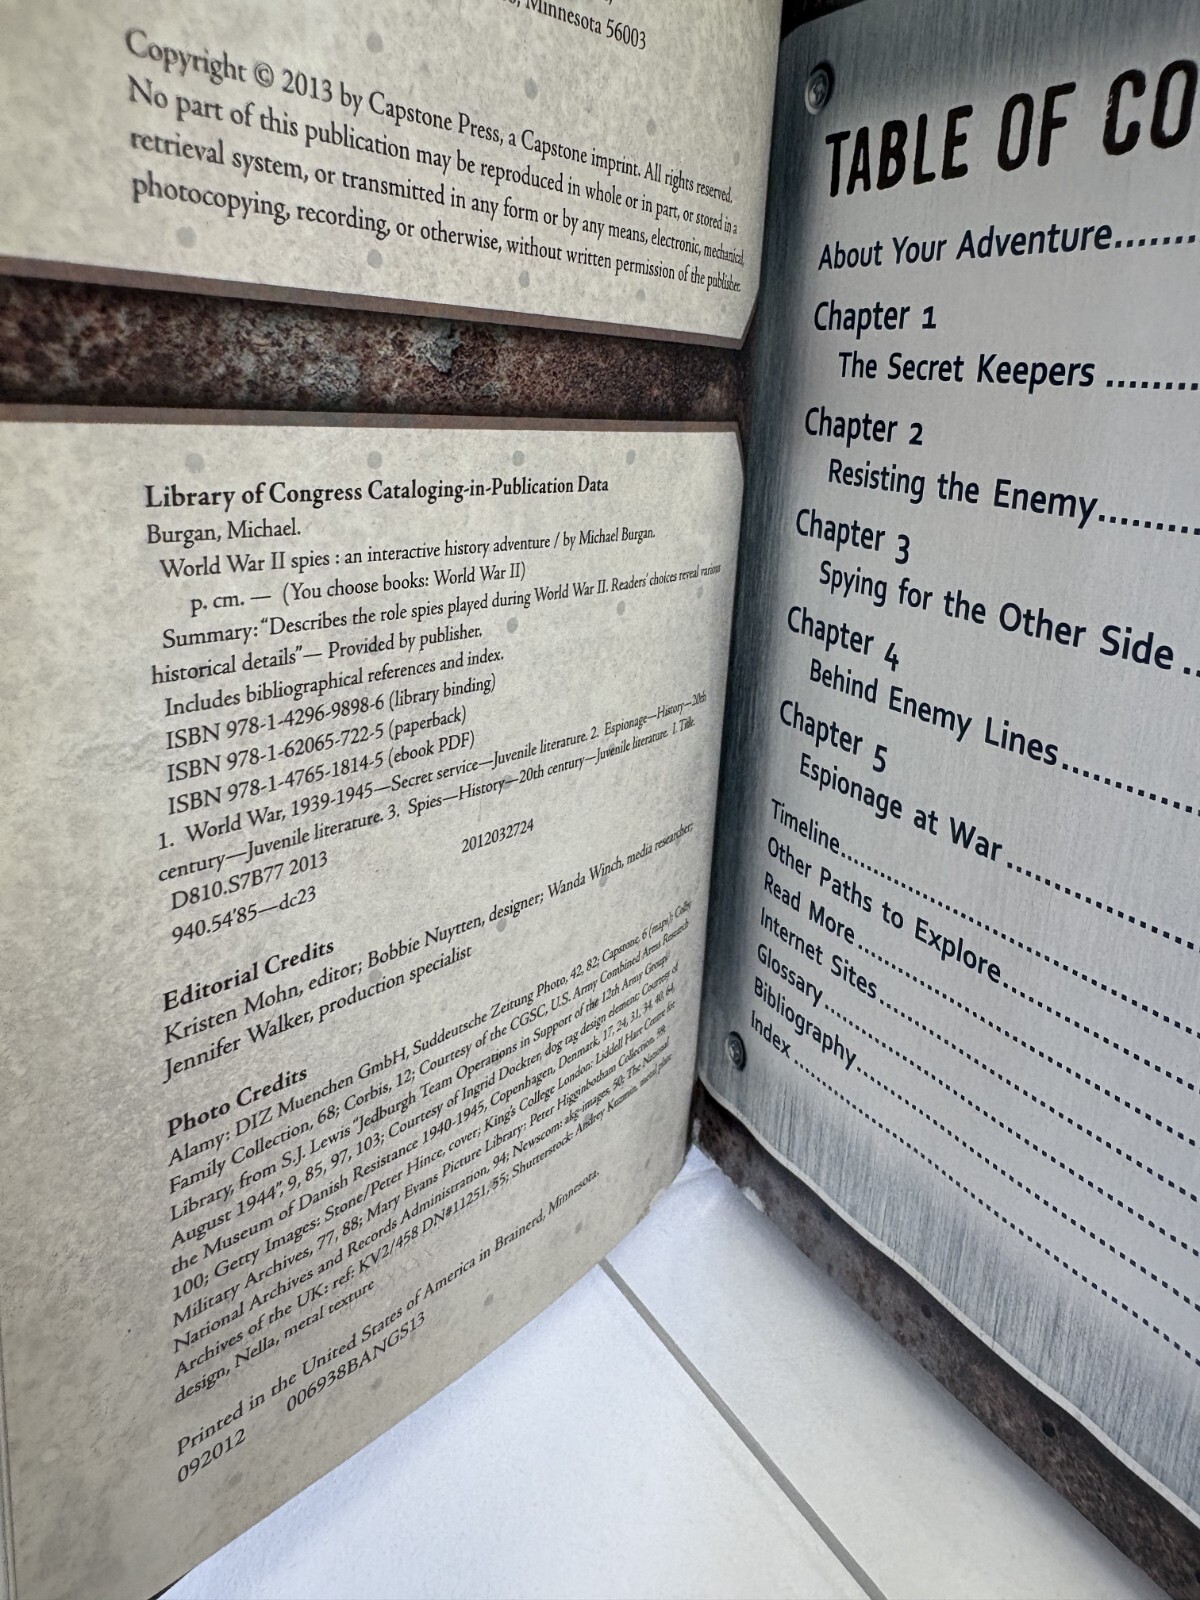 Minnesota 56003
Copyright © 2013 by Capstone Press, a Capstone imprint. All rights reserved.
No part of this publication may be reproduced in whole or in part, or stored in a
retrieval system, or transmitted in any form or by any means, electronic, mechanical,
photocopying, recording, or otherwise, without written permission of the publisher.
Library of Congress Cataloging-in-Publication Data
Burgan, Michael.
World War II spies : an interactive history adventure / by Michael Burgan.
p. cm. — (You choose books: World War II)
Summary: “Describes the role spies played during World War II. Readers’ choices reveal various
historical details”— Provided by publisher.
Includes bibliographical references and index.
ISBN 978-1-4296-9898-6 (library binding)
ISBN 978-1-62065-722-5 (paperback)
ISBN 978-1-4765-1814-5 (ebook PDF)
1. World War, 1939-1945—Secret service—Juvenile literature. 2. Espionage—History—20th
century—Juvenile literature. 3. Spies—History—20th century—Juvenile literature. I. Title.
D810.S7B77 2013
940.54’85—dc23 2012032724
Editorial Credits
Kristen Mohn, editor; Bobbie Nuytten, designer; Wanda Winch, media researcher;
Jennifer Walker, production specialist
Photo Credits
Alamy: DIZ Muenchen GmbH, Suddeutsche Zeitung Photo, 42, 82; Capstone, 6 (maps); Colby
Family Collection, 68; Corbis, 12; Courtesy of the CGSC, U.S. Army Combined Arms Research
Library, from S.J. Lewis “Jedburgh Team Operations in Support of the 12th Army Group,
August 1944”, 9, 85, 97, 103; Courtesy of Ingrid Dockter, dog tag design element; Courtesy of
the Museum of Danish Resistance 1940-1945, Copenhagen, Denmark, 17, 24, 31, 34, 40, 64,
100; Getty Images: Stone/Peter Hince, cover; King’s College London: Liddell Hart Centre for
Military Archives, 77, 88; Mary Evans Picture Library: Peter Higginbotham Collection, 59;
National Archives and Records Administration, 94; Newscom: akg-images, 50; The National
Archives of the UK: ref: KV2/458 DN#11251, 55; Shutterstock: Andrey Kuzmin, metal plate
design, Nella, metal texture
Printed in the United States of America in Brainerd, Minnesota.
092012 006938BANGS13
TABLE OF CO
About Your Adventure........
Chapter 1
The Secret Keepers ........
Chapter 2
Resisting the Enemy.........
Chapter 3
Spying for the Other Side ..
Chapter 4
Behind Enemy Lines...........
Chapter 5
Espionage at War ..............
Timeline..............................
Other Paths to Explore...........
Read More..............................
Internet Sites..........................
Glossary..................................
Bibliography............................
Index ......................................